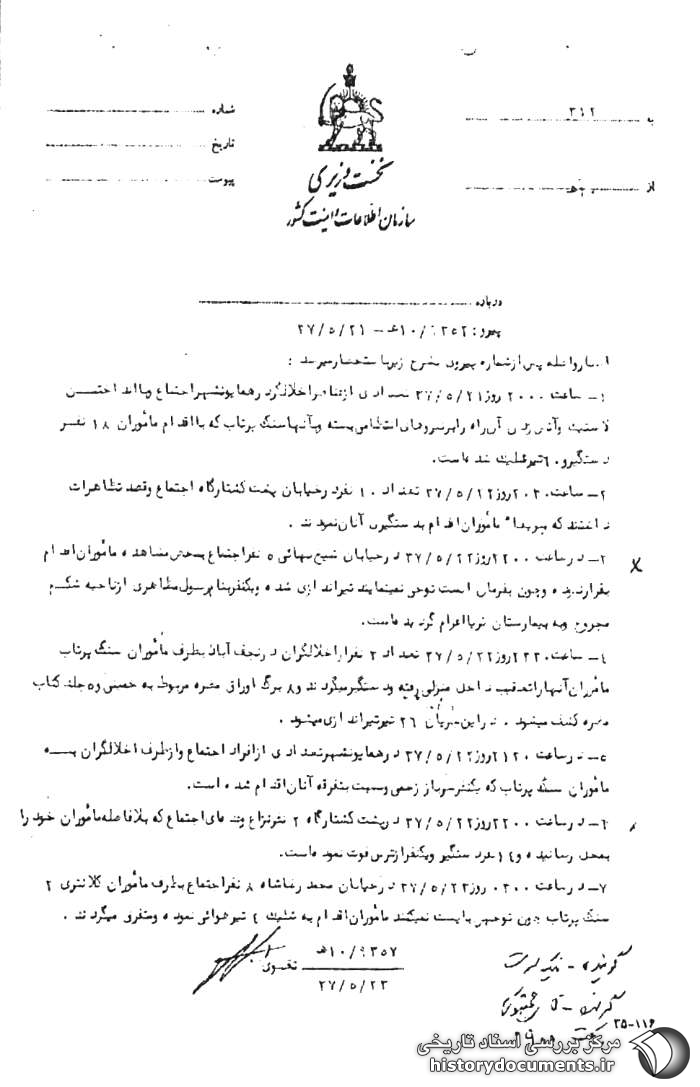 به ۳۱۲
شماره
تاریخ
از هـ
پیوست
نخست وزیری
سازمان اطلاعات و امنیت کشور
درباره
پیرو: ۱۰هـ - ۳۷/۵/۲۱
پس از شماره پیروی بشرح زیر باستحضار میرسد :
۱- ساعت ۲۰۰۰ روز ۳۷/۵/۲۱ تعدادی از عناصر اخلالگر در همایونشهر اجتماع و با
لاستیک و آتش زدن آن راه را بر نیروهای انتظامی بسته و بآنها سنگ پرتاب که با اقدام مأموران ۱۸ نفر
دستگیر و ۶ تیر شلیک شده است.
۲- ساعت ۲۰۳۰ روز ۳۷/۵/۲۲ تعداد ۱۰ نفر در خیابان پشت کشتارگاه اجتماع و قصد تظاهرات
داشتند که مأموران اقدام به دستگیری آنان نمودند .
۳- در ساعت ۲۲۰۰ روز ۳۷/۵/۲۲ در خیابان شیخ بهائی ۵ نفر اجتماع بمحض مشاهده مأموران اقدام
بفرار نموده و چون بفرمان ایست توجهی نمینمایند تیراندازی شده و یکنفر بنام رسول مظاهری از ناحیه شکم
مجروح و به بیمارستان ثریا اعزام گردیده است.
۴- ساعت ۲۲۳۰ روز ۳۷/۵/۲۲ تعداد ۲ نفر از اخلالگران در نجف آباد بطرف مأموران سنگ پرتاب
مأموران آنها را تعقیب داخل منزلی رفته و دستگیر میگردند و ۸ برگ اوراق مضره مربوط به خمینی و ۵ جلد کتاب
مضره کشف میشود . در این جریان ۲۶ تیر تیراندازی میشود .
۵- در ساعت ۲۱۳۰ روز ۳۷/۵/۲۲ در همایونشهر تعدادی از افراد اجتماع و از طرف اخلالگران به
مأموران سنگ پرتاب که یکنفر سرباز زخمی و نسبت بتفرقه آنان اقدام شده است.
۶- در ساعت ۲۲۰۰ روز ۳۷/۵/۲۲ در پشت کشتارگاه ۲ نفر نزاع و عده‌ای اجتماع که بلافاصله مأموران خود را
بمحل رسانیده و ۱۴ نفر دستگیر و یکنفر از ترس فوت نموده است.
۷- در ساعت ۰۲۰۰ روز ۳۷/۵/۲۳ در خیابان محمد رضا شاه ۸ نفر اجتماع بطرف مأموران کلانتری ۲
سنگ پرتاب چون توجهی بایست نمیکنند مأموران اقدام به شلیک ۴ تیر هوائی نموده و متفرق میگردند .
۱۰/۹۳۵۷هـ
تقوی
۳۷/۵/۲۳
گوینده -
گیرنده -
ساعت
۳۵-۱۱۶
مرکز بررسی اسناد تاریخی
historydocuments.ir